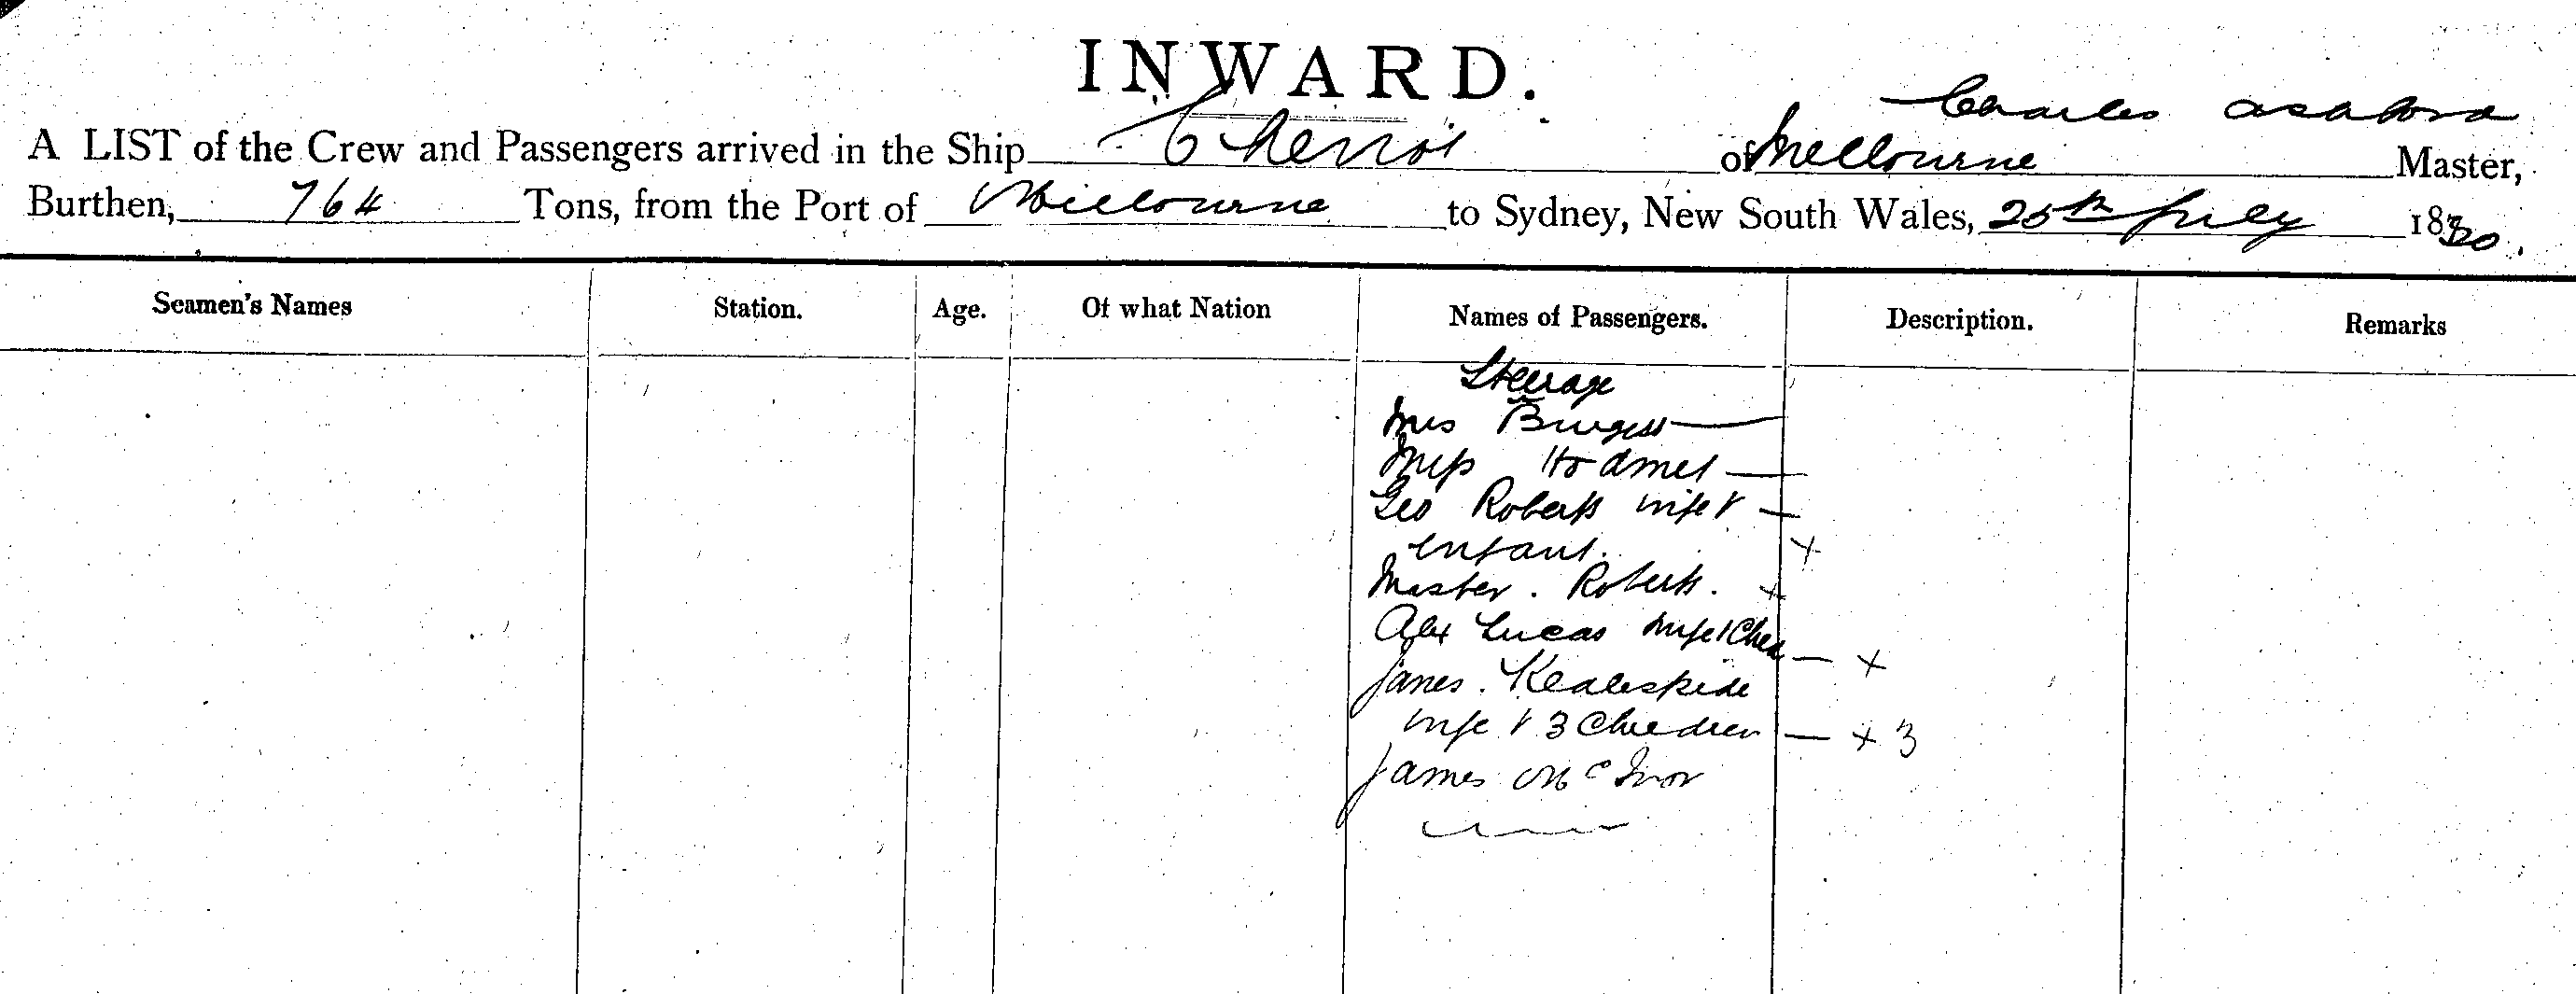 INWARD.
Charles Ashford
A LIST of the Crew and Passengers arrived in the Ship Cheviot of Melbourne Master,
Burthen, 764 Tons, from the Port of Melbourne to Sydney, New South Wales, 25th July 1880.
Seamen's Names Station. Age. Of what Nation Names of Passengers. Description. Remarks
Steerage
Mrs Burgess —
Miss —
Geo Roberts wife & —
infant. +
Master. Roberts. +
Alex Lucas wife 1 Child — +
James.
wife & 3 Children — + 3
James McIvor